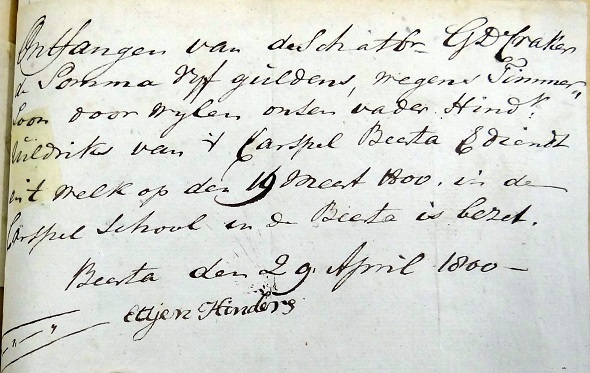 Ontfangen van de Schatbr GD Craker
de Somma Vyf guldens, wegens Timmer„
Loon door wylen onsen vader Hindk:
Uildriks van 't Carspel Beerta Edient
en 't welk op den 19 Meert 1800. in de
Carspel School in de Beerta is bezet.
Beerta den 29. April 1800 —
Ettjen Hinders